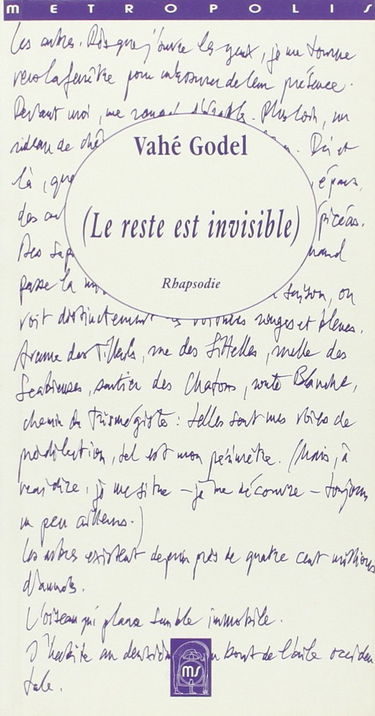 METROPOLIS
les autres. Dès que j'ouvre les yeux, je me tourne
vers la fenêtre pour m'assurer de leur présence.
Devant moi, une d'érable. Plus loin, un
rideau de Ici et
là, épars,
des
Des
passe la saison, on
voit distinctement les rouges et bleues.
Avenue des Tilleuls, rue des Sittelles, ruelle des
Scabieuses, sentier des Chatons, route Blanche,
chemin du Trismégiste : telles sont mes voies de
prédilection, tel est mon périmètre. (Mais, à
vrai dire, je me situe – je me découvre – toujours
un peu ailleurs.)
Les arbres existent depuis près de quatre cent millions
d'années.
L'oiseau qui plane semble immobile.
J'habite au bout de l'aile occiden
tale.
Vahé Godel
(Le reste est invisible)
Rhapsodie
MS